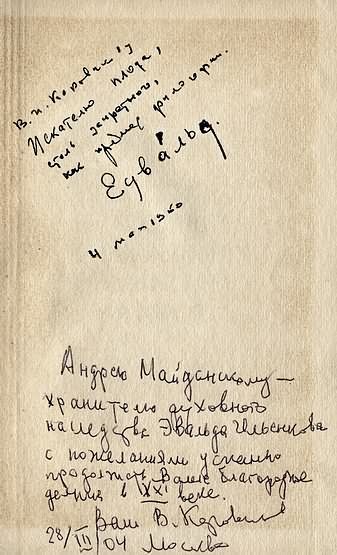 В. И. Коровикову
Искателю плода,
столь запретного,
как предмет философии.
Эдвальд.
4 мая 1960
Андрею Майданскому —
хранителю духовного
наследства Эвальда Ильенкова
с пожеланиями успешно
продолжить Ваше благородное
деяния в XXI веке.
Ваш В. Коровиков
28/III 04 Москва